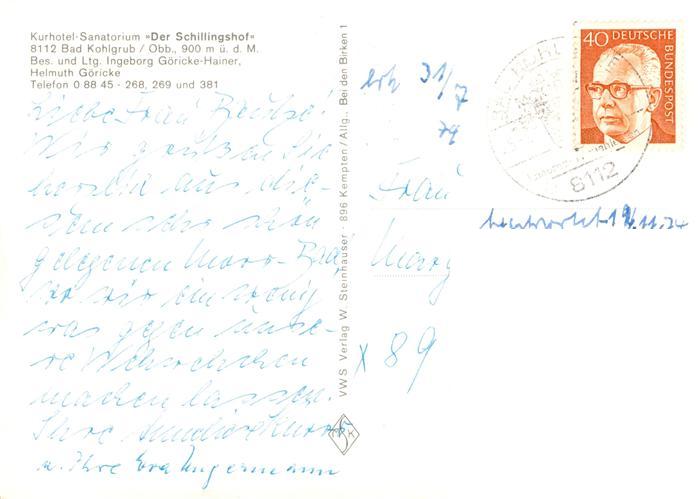 Kurhotel-Sanatorium »Der Schillingshof«
8112 Bad Kohlgrub / Obb., 900 m ü. d. M.
Bes. und Ltg. Ingeborg Göricke-Hainer,
Helmuth Göricke
Telefon 0 88 45 - 268, 269 und 381
Liebe Frau
Wir grüßen Sie
herzlich aus die-
sem sehr schön
gelegenen Moor-Bad,
wo wir ein wenig
was gegen unse-
re Wehwehchen
machen lassen.
Ihre
u. Ihre Eva Ungermann
VWS Verlag W. Steinhäuser · 896 Kempten/Allg., Bei den Birken 1
31/7
74
Frau
beantwortet 11.74
x 89
40 DEUTSCHE BUNDESPOST
8112